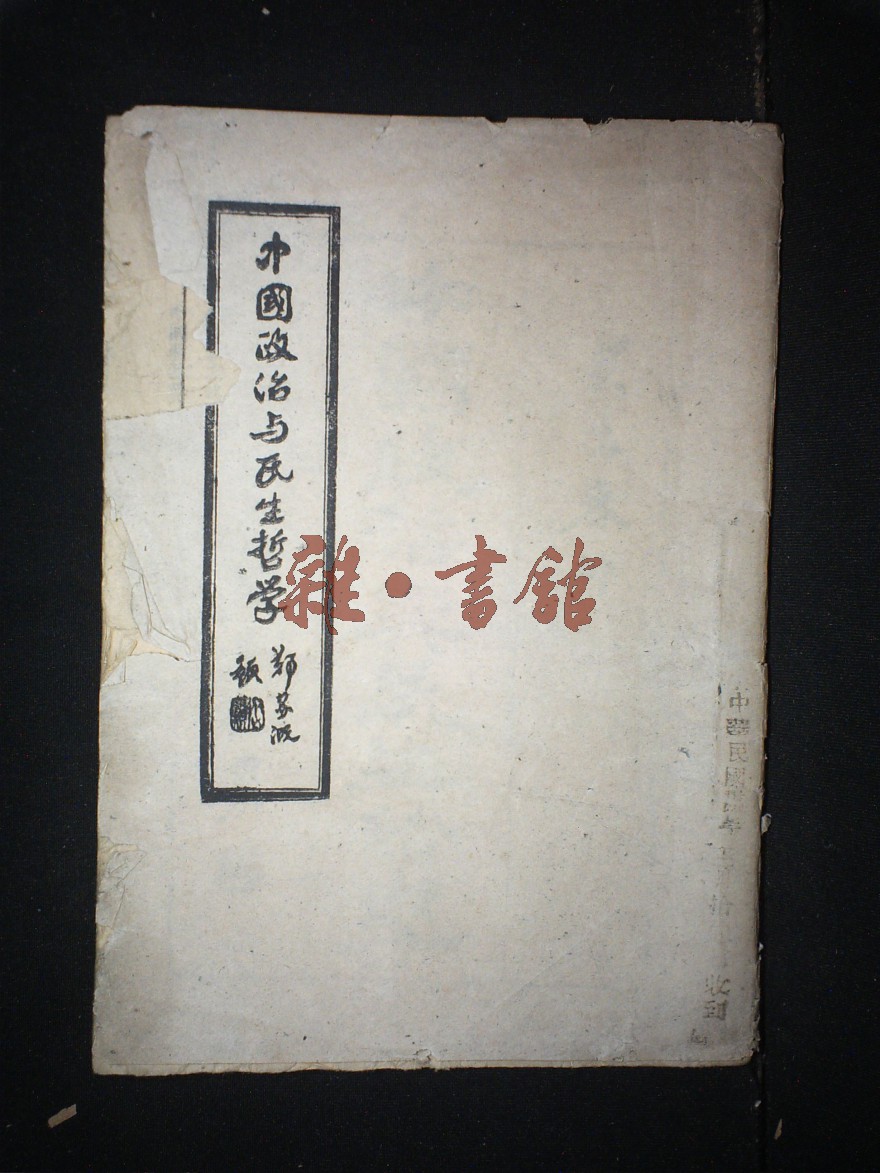 中國政治与民生哲学
鄭
題
雜·書館
中華民國
年
收到